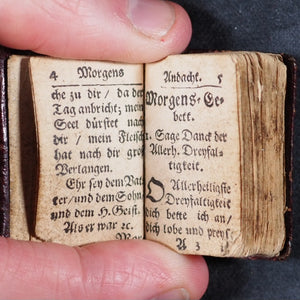 4 Morgens
che zu dir / da der
Tag anbricht; mein
Seel dürstet nach
dir / mein Fleisch
hat nach dir groß
Verlangen.
Ehr sey dem Vat-
ter / und dem Sohn
und dem H. Geist.
Als er war ec.
Mor-
Andacht. 5
Morgens-Ge-
bett.
1. Sage Danck der
Allerh. Dreyfal-
tigkeit.
O Allerheiligste
Dreyfaltigkeit
dich bette ich an /
dich lobe und preyß
A 3